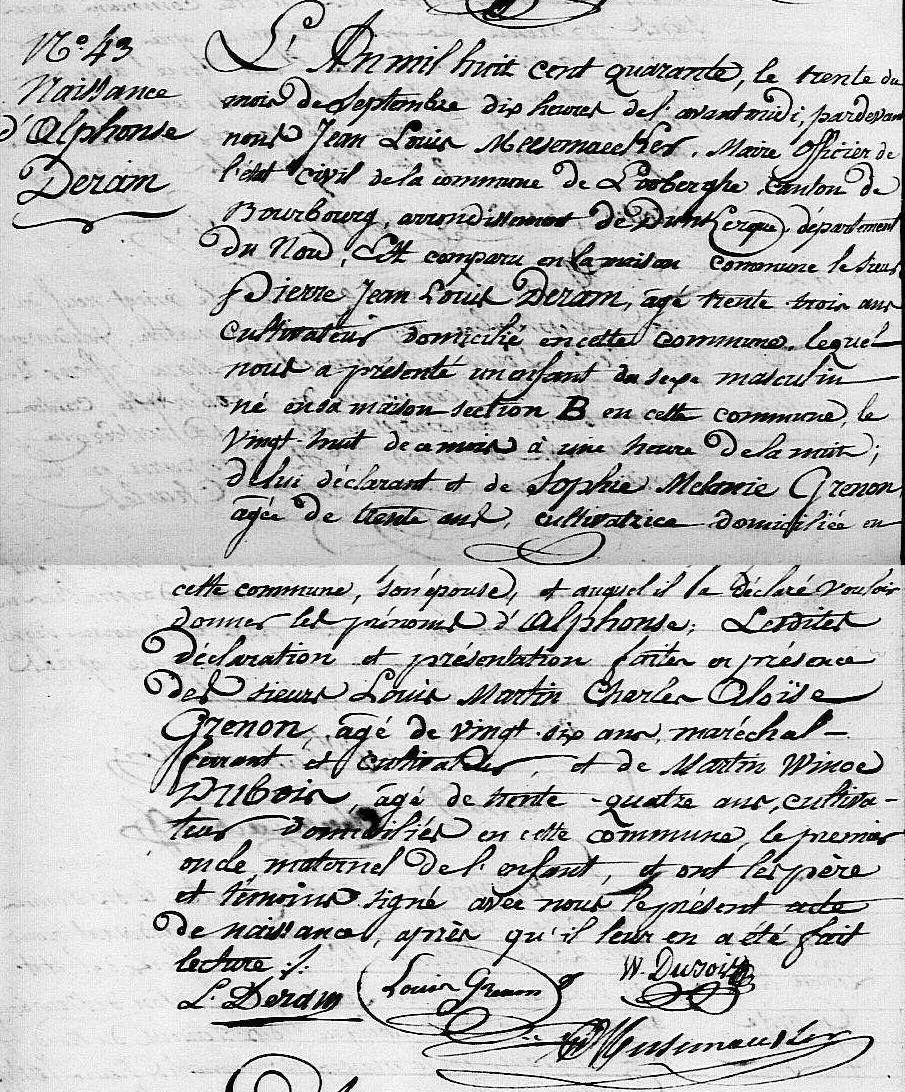 N.º 43
Naissance
d'Alphonse
Deram
L'An mil huit cent quarante, le trente du
mois de Septembre dix heures de l'avant midi, pardevant
nous Jean Louis Meesemaecker, Maire officier de
l'état civil de la commune de Looberghe, canton de
Bourbourg, arrondissement de Dunkerque, département
du Nord, Est comparu en la maison commune le sieur
Pierre Jean Louis Deram, âgé trente trois ans
cultivateur domicilié en cette commune, lequel
nous a présenté un enfant du sexe masculin
né en sa maison section B en cette commune, le
vingt huit de ce mois à une heure de la nuit,
de lui déclarant et de Sophie Melanie Grenon,
âgée de trente ans, cultivatrice domiciliée en
cette commune, son épouse, et auquel il a déclaré vouloir
donner les prénoms d'Alphonse, Lesdites
déclaration et présentation faites en présence
des sieurs Louis Martin Charles Aloïse
Grenon, âgé de vingt six ans, maréchal-
ferrant et cultivateur, et de Martin Winoc
Dubois, âgé de trente-quatre ans, cultiva-
teur domiciliés en cette commune, le premier
oncle maternel de l'enfant, et ont les père
et témoins signé avec nous le présent acte
de naissance, après qu'il leur en a été fait
lecture ./.
L. Deram Louis Grenon W. Dubois
Meesemaecker